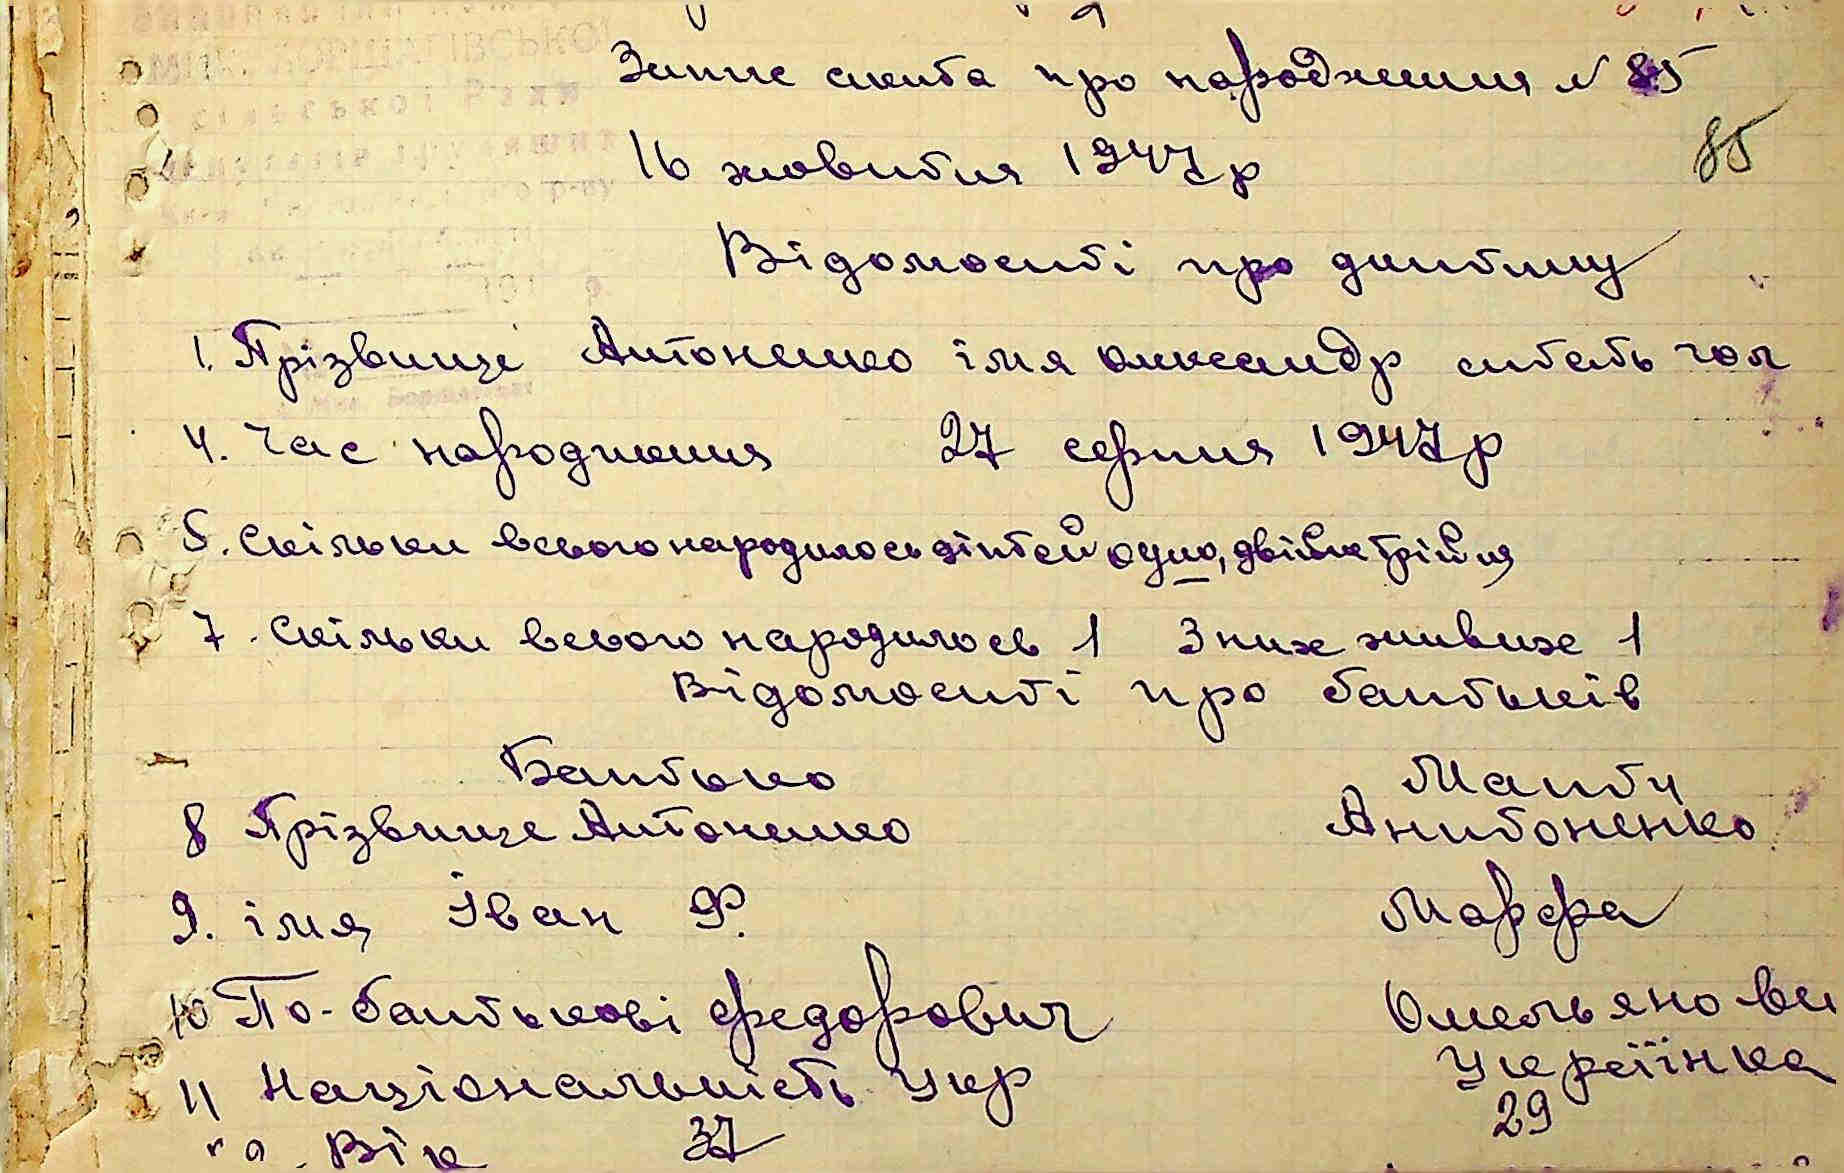 Запис акта про народження № 85
85
16 жовтня 1947 р
Відомості про дитину
1. Прізвище Антоненко імя Олександр стать чол
4. Час народження 27 серпня 1947 р
5. Скільки всього народилось дітей одно, двійня трійня
7. Скільки всього народилось 1 З них живих 1
Відомості про батьків
Батько Мати
8 Прізвище Антоненко Антоненко
9. імя Іван Ф. Марфа
10 По-батькові Федорович Омельянов
11 Національність Укр Українка
Вік 37 29